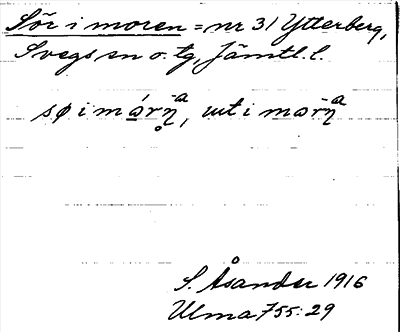 Sör i moren = nr 31 Ytterberg,
Svegs sn o. tg, Jämtl. l.
sø i márŋ̄a, ut i marŋ̄a
S. Åsander 1916
Ulma 755:29